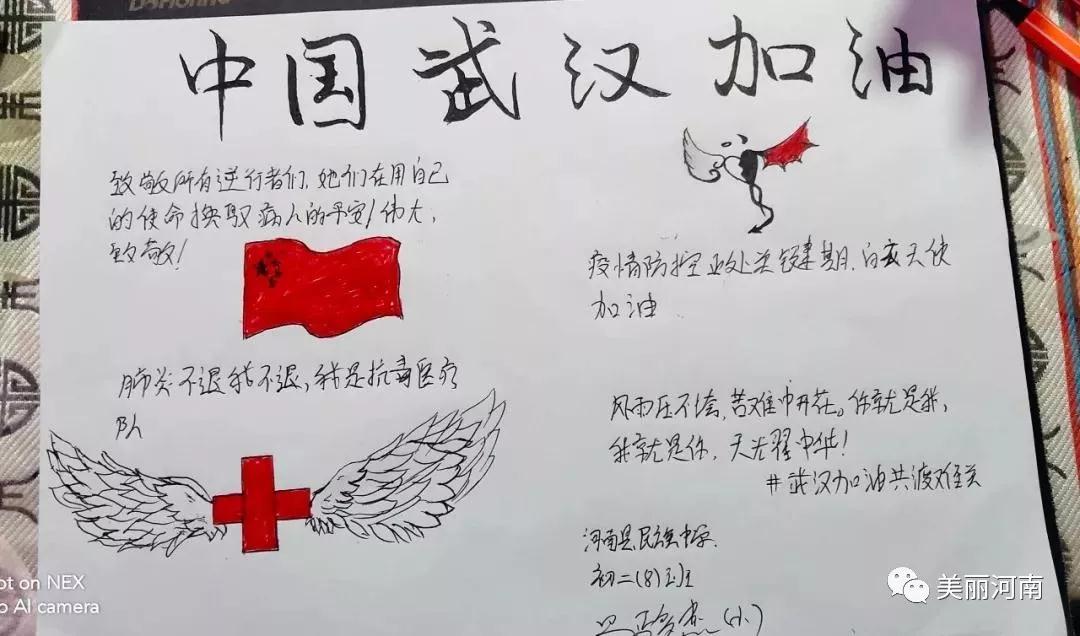 中国武汉加油
致敬所有逆行者们,她们在用自己
的使命换取病人的平安!伟大,
致敬!
疫情防控正处关键期.白衣天使
加油
肺炎不退我不退,我是抗毒医疗
队
风雨压不垮,苦难中开花。你就是我,
我就是你,天光耀中华!
#武汉加油共渡难关
河南县民族中学.
初二(8)班
(小)
ot on NEX
AI camera
美丽河南